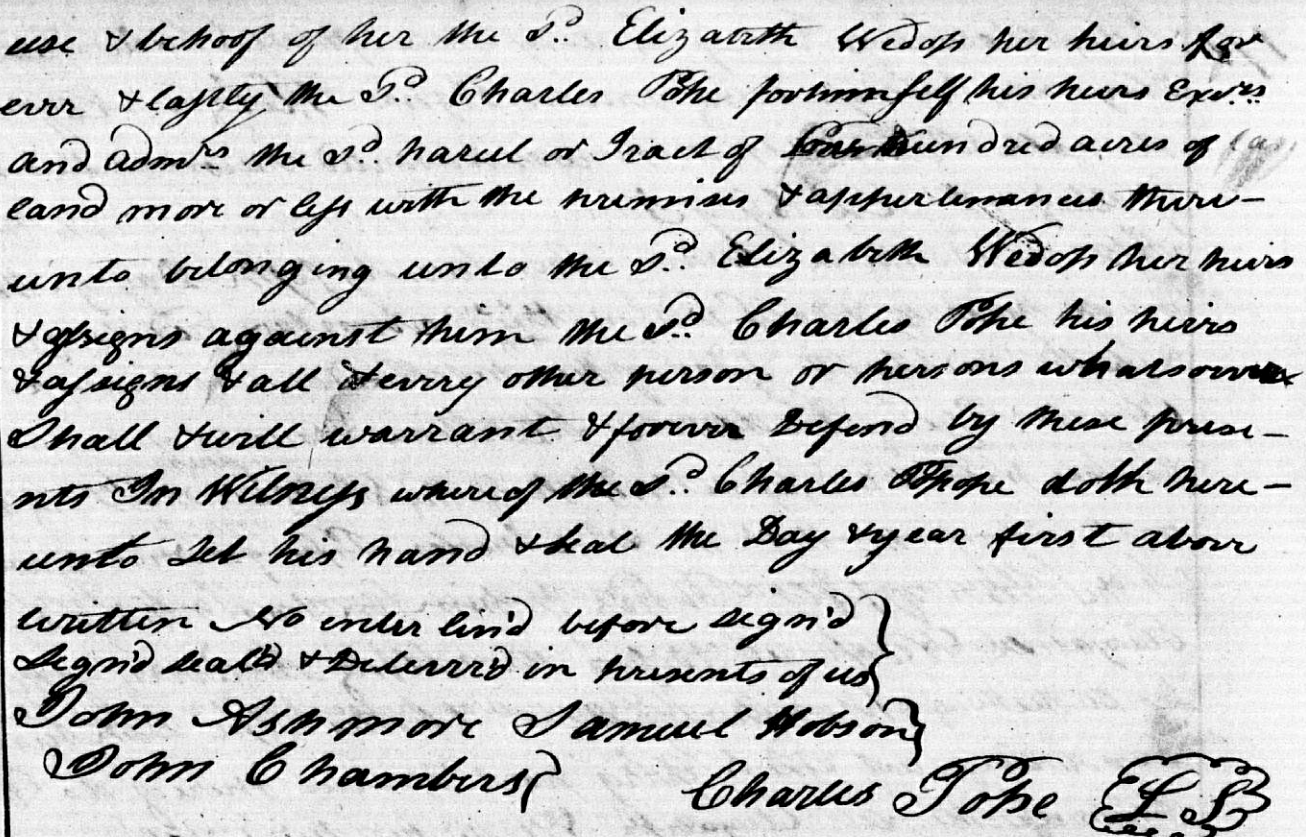 use & behoof of her the Sd. Elizabeth Wedoss her heirs for
ever & lastly the Sd. Charles Pope for himself his heirs Exors
and admrs the Sd. parcel or Tract of Hundred acres of
land more or less with the premises & appurtenances there-
unto belonging unto the Sd. Elizabeth Wedoss her heirs
& assigns against him the Sd. Charles Pope his heirs
& assigns & all & every other person or persons whatsoever
Shall & will warrant & forever Defend by these prese-
nts In Witness whereof the Sd. Charles Pope doth here-
unto Set his hand & Seal the Day & year first above
written No inter lin'd before sign'd
Sign'd seal'd & Deliverr'd in presents of us
John Ashmore Samuel Hobson
John Chambers Charles Pope L S